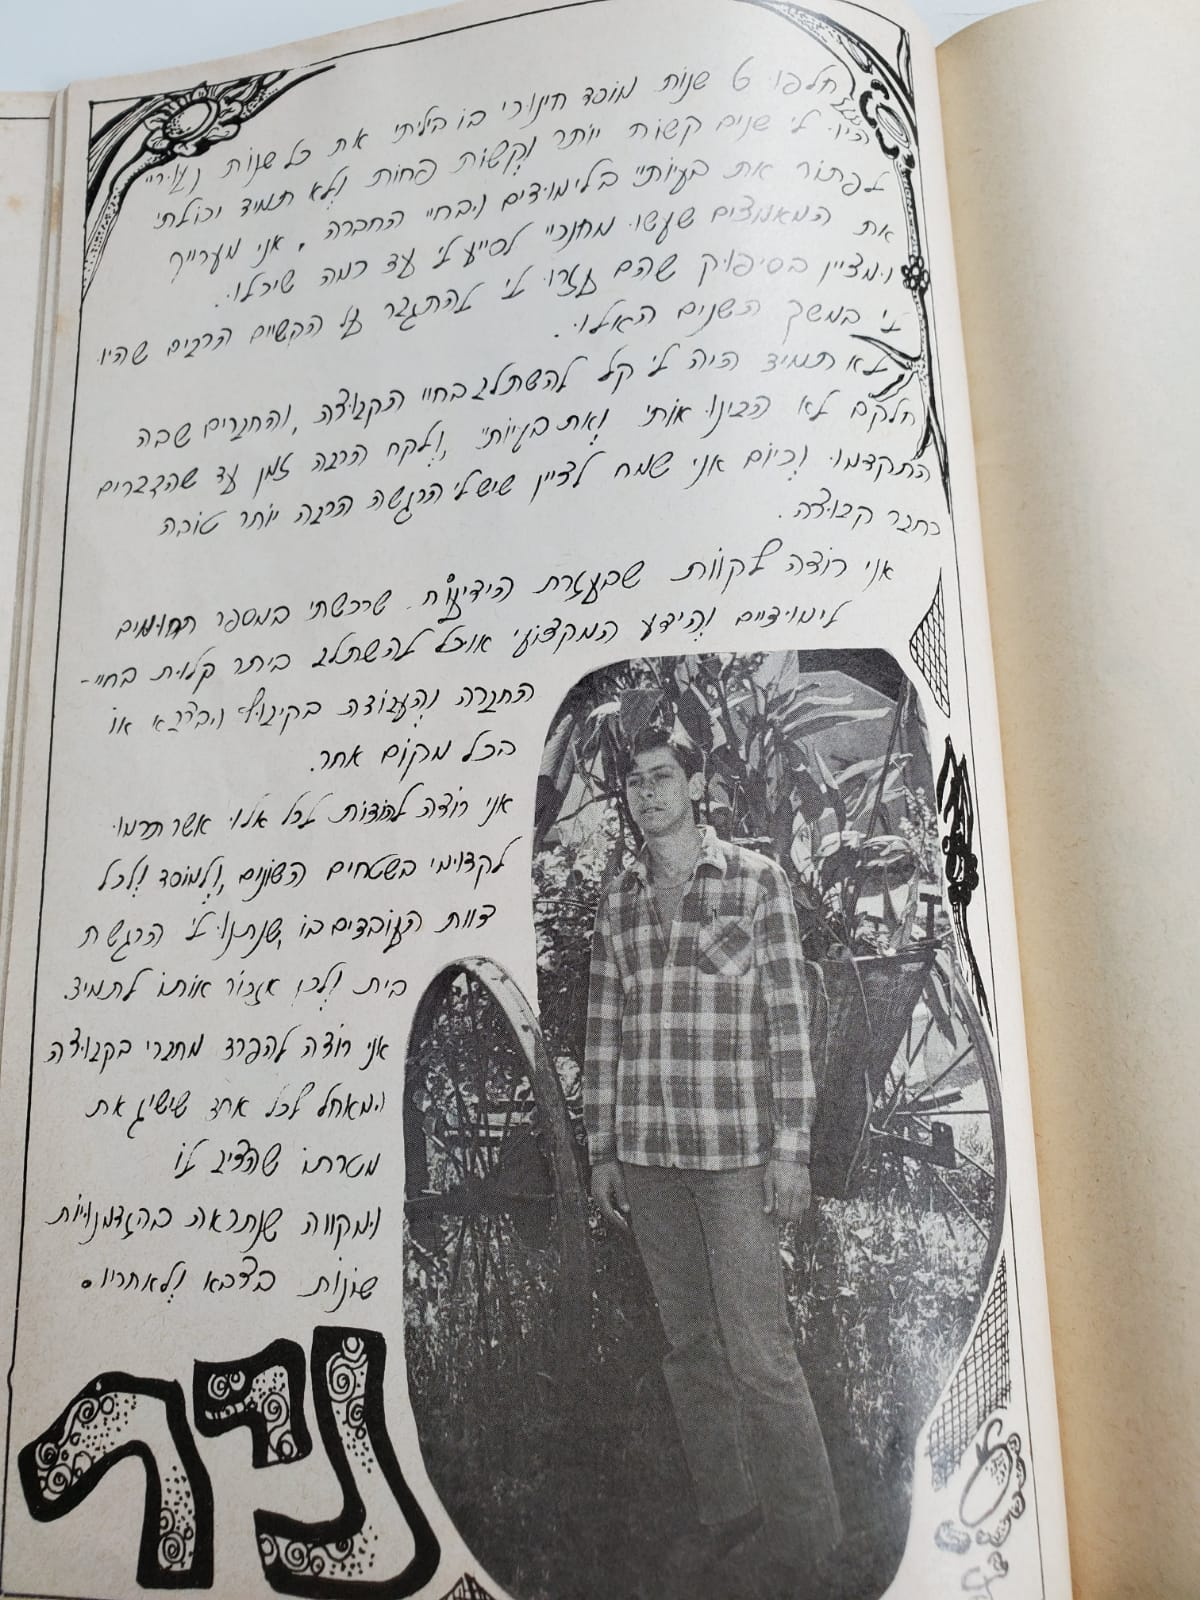 חלפו 6 שנות מוסד חינוכי בו ביליתי את כל שנות נעוריי
היו לי שנים קשות יותר וקשות פחות ולא תמיד יכולתי
לפתור את בעיותיי בלימודים ובחיי החברה, אני מעריך
את המאמצים שעשו מחנכיי לסייע לי עד כמה שיכלו.
ומציין בסיפוק שהם עזרו לי להתגבר על הקשיים הרבים שהיו
לי במשך השנים האלו.
לא תמיד היה לי קל להשתלב בחיי הקבוצה, והחברים שבה
חלקם לא הבינו אותי ואת בעיותיי, ולקח הרבה זמן עד שהדברים
התקדמו וכיום אני שמח לציין שיש לי הרגשה הרבה יותר טובה
כחבר קבוצה.
אני רוצה לקוות שבעזרת הידיעות שרכשתי במספר תחומים
לימודיים והידע המקצועי אוכל להשתלב ביתר קלות בחיי-
החברה והעבודה בקיבוץ ובצבא או
בכל מקום אחר.
אני רוצה להודות לכל אלו אשר תרמו
לקדומי בשטחים השונים, ולמוסד ולכל
צוות העובדים בו, שנתנו לי הרגשת
בית ולכן אזכור אותו לתמיד.
אני רוצה להפרד מחברי בקבוצה
ומאחל לכל אחד שישיג את
מטרתו שהציב לו
ומקווה שנתראה בהזדמנויות
שונות בצבא ולאחריו.
ניר